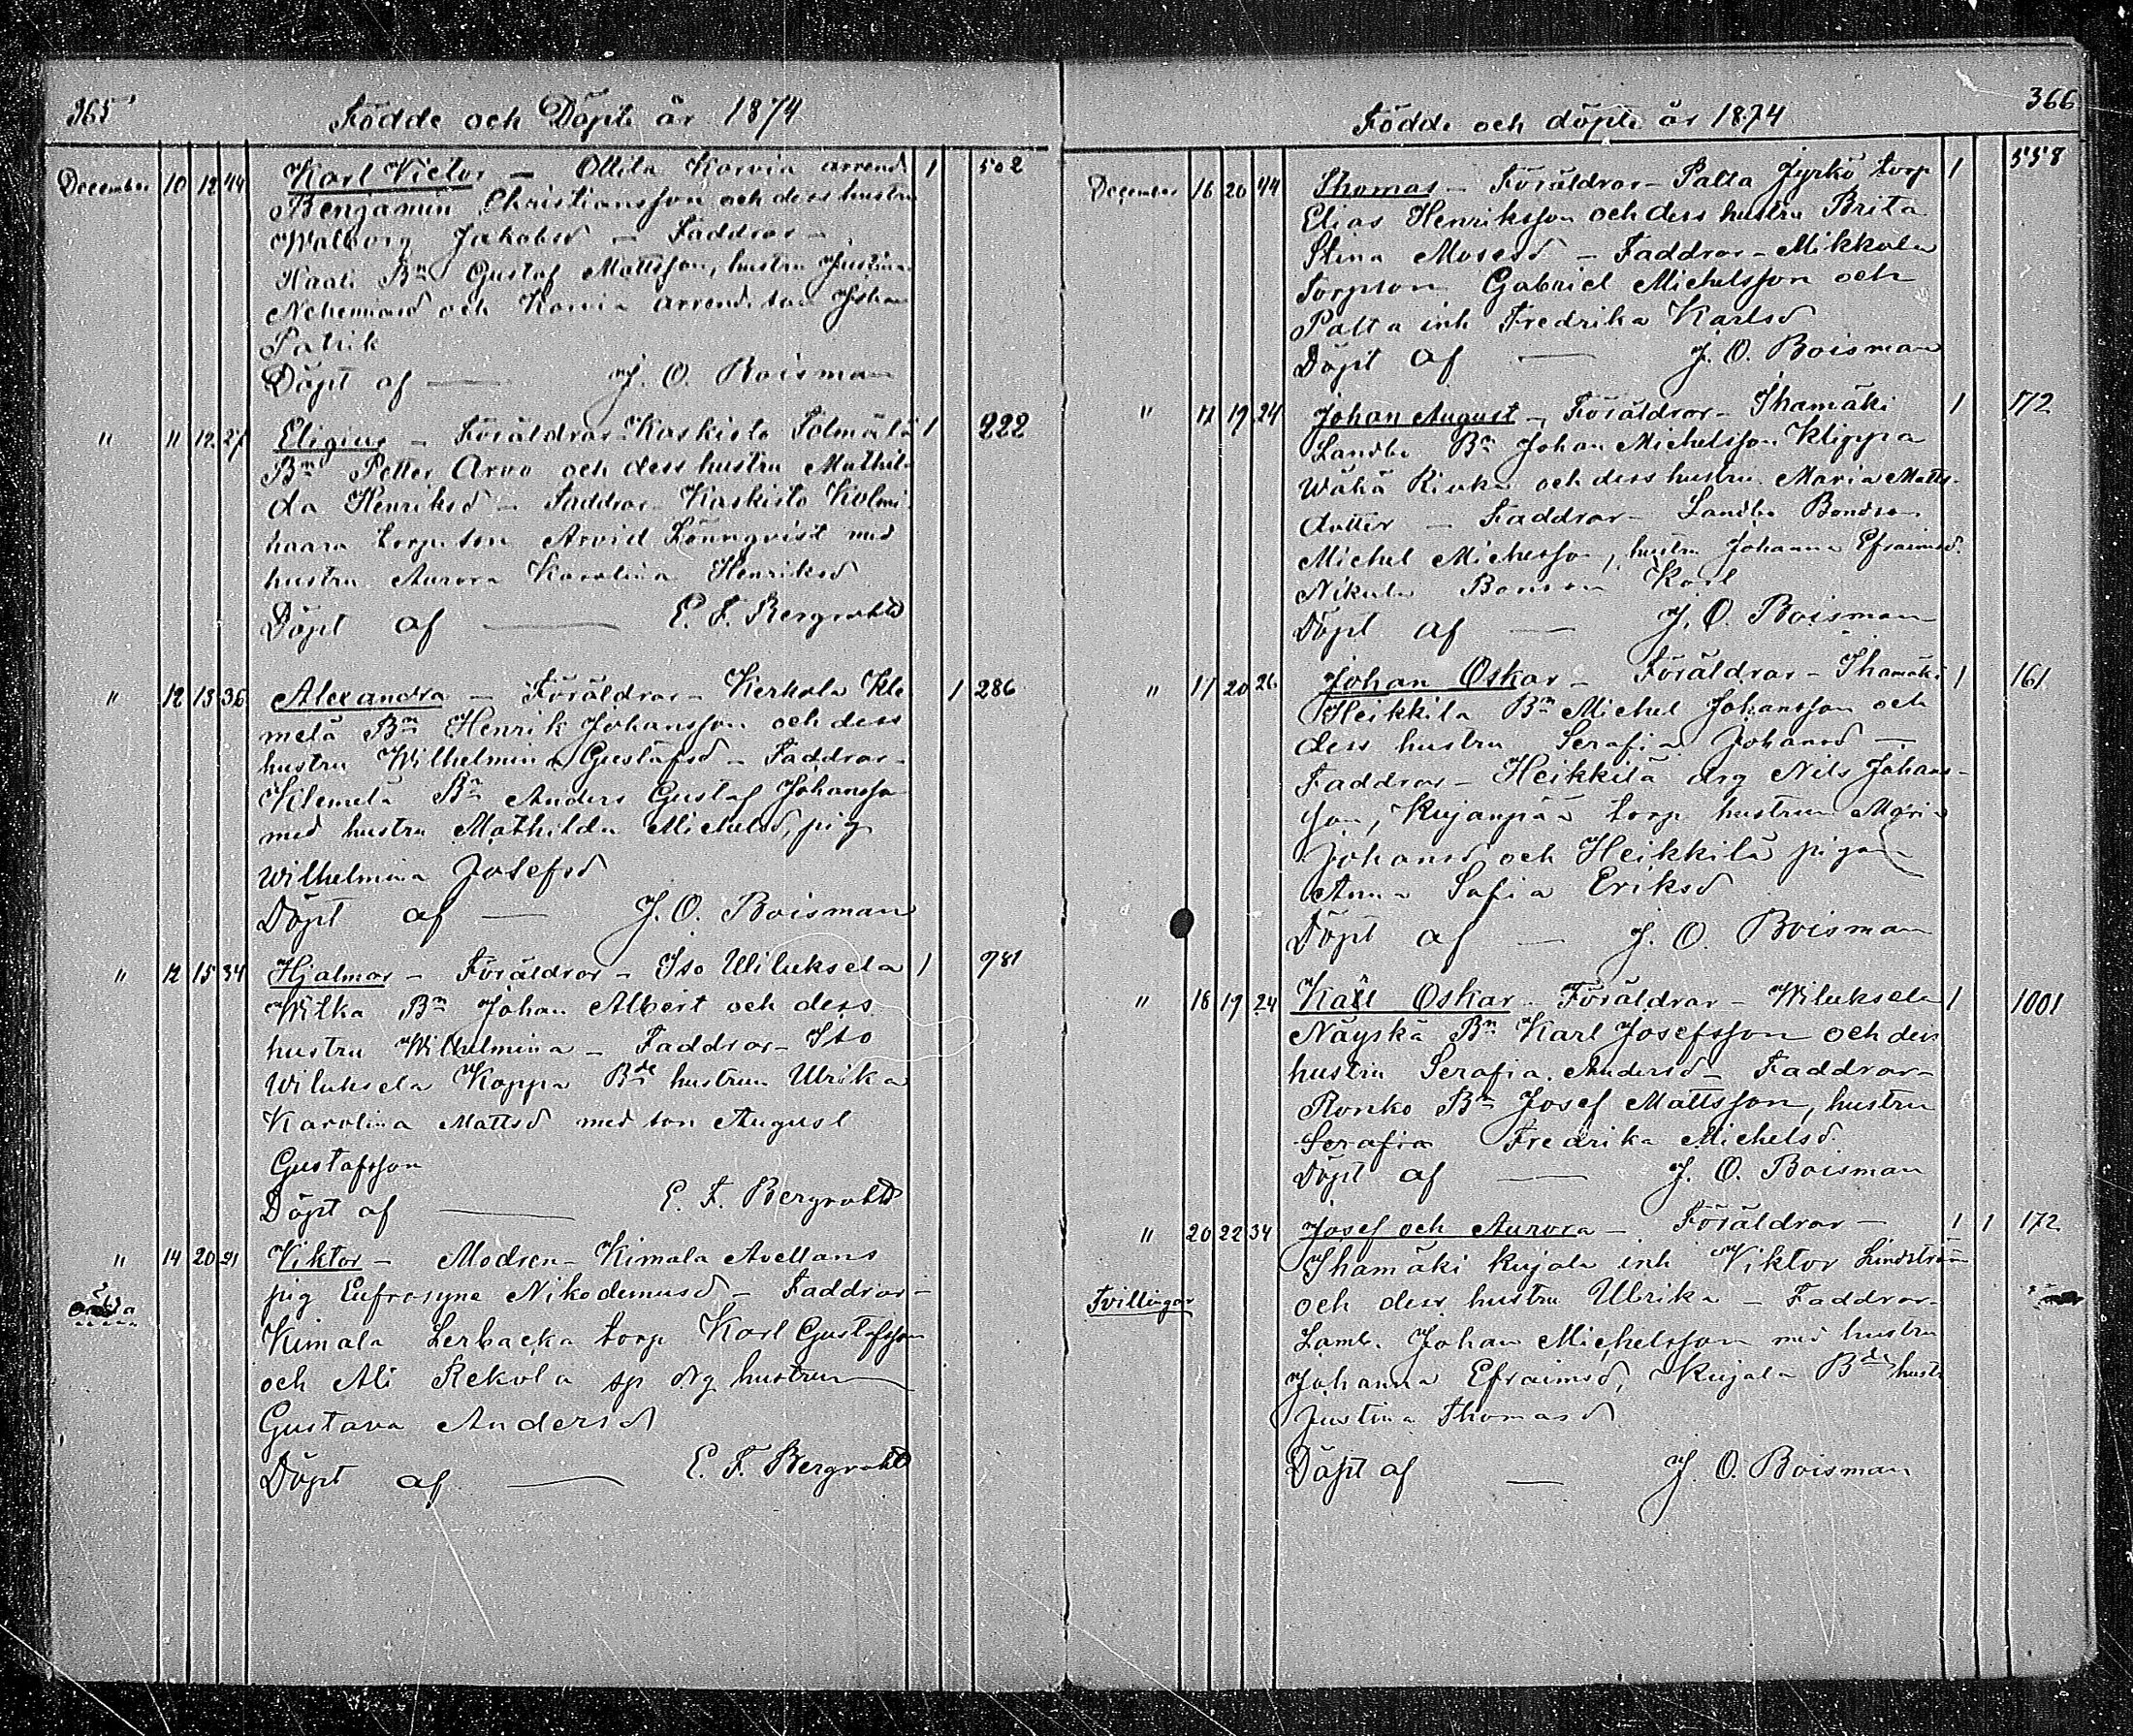 365 Födde och Döpte år 1874
December 10 12 44 Karl Victor – Ottila Korvia arrend. 1 502
Benjamin Christiansson och dess hustru
Walborg Jakobsd – Faddrar –
Kaali Bn Gustaf Mattsson, hustru Justina
Nehemiasd och Korvia arrend. son Johan
Patrik
Döpt af — J. O. Boisman
" 11 12 27 Eligius – Föräldrar – Kaskisto Tolmälä 1 222
Bn Petter Arvo och dess hustru Mathil-
da Henriksd – Faddrar – Kaskisto Kolmi-
haara torp. son Arvid Lönnqvist med
hustru Aurora Karolina Henriksd
Döpt af — E. F. Bergroth
" 12 13 36 Alexandra – Föräldrar – Kerkola Kle- 1 286
melä Bn Henrik Johansson och dess
hustru Wilhelmina Gustafsd – Faddrar –
Klemelä Bn Anders Gustaf Johansson
med hustru Mathilda Michelsd, pig.
Wilhelmina Josefsd
Döpt af — J. O. Boisman
" 12 15 34 Hjalmar – Föräldrar – Iso Wiluksela 1 981
Wilka Bn Johan Albert och dess
hustru Wilhelmina – Faddrar – Iso
Wiluksela Koppa Bde hustrun Ulrika
Karolina Mattsd med son August
Gustafsson
Döpt af — E. F. Bergroth
" 14 20 21 Viktor – Modren – Kimala Avellans
oäkta pig Eufrosyne Nikodemusd – Faddrar –
Kimala Lerbacka torp Karl Gustafsson
och Ali Rekola sp drg hustrun
Gustava Andersd
Döpt af — E. F. Bergroth
Födde och döpte år 1874 366
December 16 20 44 Thomas – Föräldrar – Palta Jyrkö torp 1 558
Elias Henriksson och dess hustru Brita
Stina Mosesd – Faddrar – Mikkola
torpson Gabriel Michelsson och
Palta inh Fredrika Karlsd
Döpt af — J. O. Boisman
" 17 19 24 Johan August – Föräldrar – Ihamäki 1 172
Landbo Bn Johan Michelsson Klippa
Wähä Kivka och dess hustru Maria Matts-
dotter – Faddrar – Landbo Bondson
Michel Michelsson, hustru Johanna Efraimsd.
Nikula Bonson Karl
Döpt af — J. O. Boisman
" 17 20 26 Johan Oskar – Föräldrar – Ihamäki 1 161
Heikkilä Bn Michel Johansson och
dess hustru Serafia Johansd –
Faddrar – Heikkilä drg Nils Johans-
son, Kujanpää torp hustrun Maria
Johansd och Heikkilä pigan
Anna Sofia Eriksd
Döpt af — J. O. Boisman
" 18 19 24 Karl Oskar – Föräldrar – Wiluksela 1 1001
Näyskä Bn Karl Josefsson och dess
hustru Serafia Andersd – Faddrar –
Ronko Bn Josef Mattsson, hustru
Serafia Fredrika Michelsd.
Döpt af — J. O. Boisman
" 20 22 34 Josef och Aurora – Föräldrar – 1 1 172
Ihamäki Kujala inh Viktor Lindström
Tvillingar och dess hustru Ulrika – Faddrar –
Lamb. Johan Michelsson med hustru
Johanna Efraimsd, Kujala Bde hustr
Justina Thomasd
Döpt af — J. O. Boisman